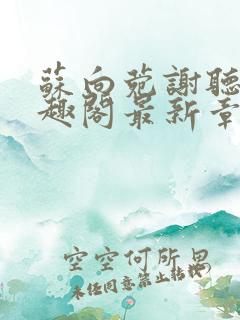 蘇向菀謝聽
趣閣最新章
空空何所思
未經同意禁止轉載